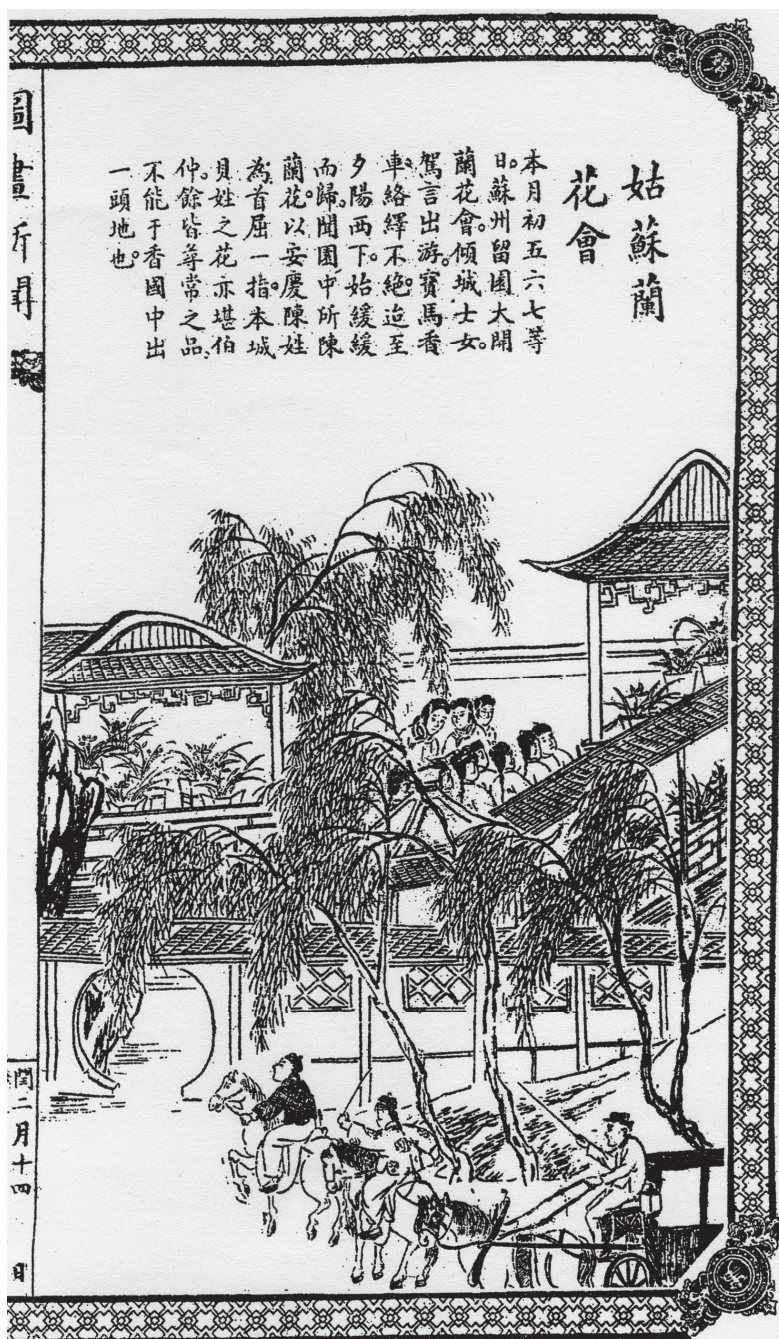 姑蘇蘭
花會
本月初五六七等
日。蘇州留園大開
蘭花會。傾城士女。
駕言出游。寶馬香
車。絡繹不絕。迨至
夕陽西下。始緩緩
而歸。聞園中所陳
蘭花。以安慶陳姓
為首屈一指。本城
貝姓之花亦堪伯
仲。餘皆尋常之品。
不能于香國中出
一頭地也。
圖畫新聞
閏二月十四日